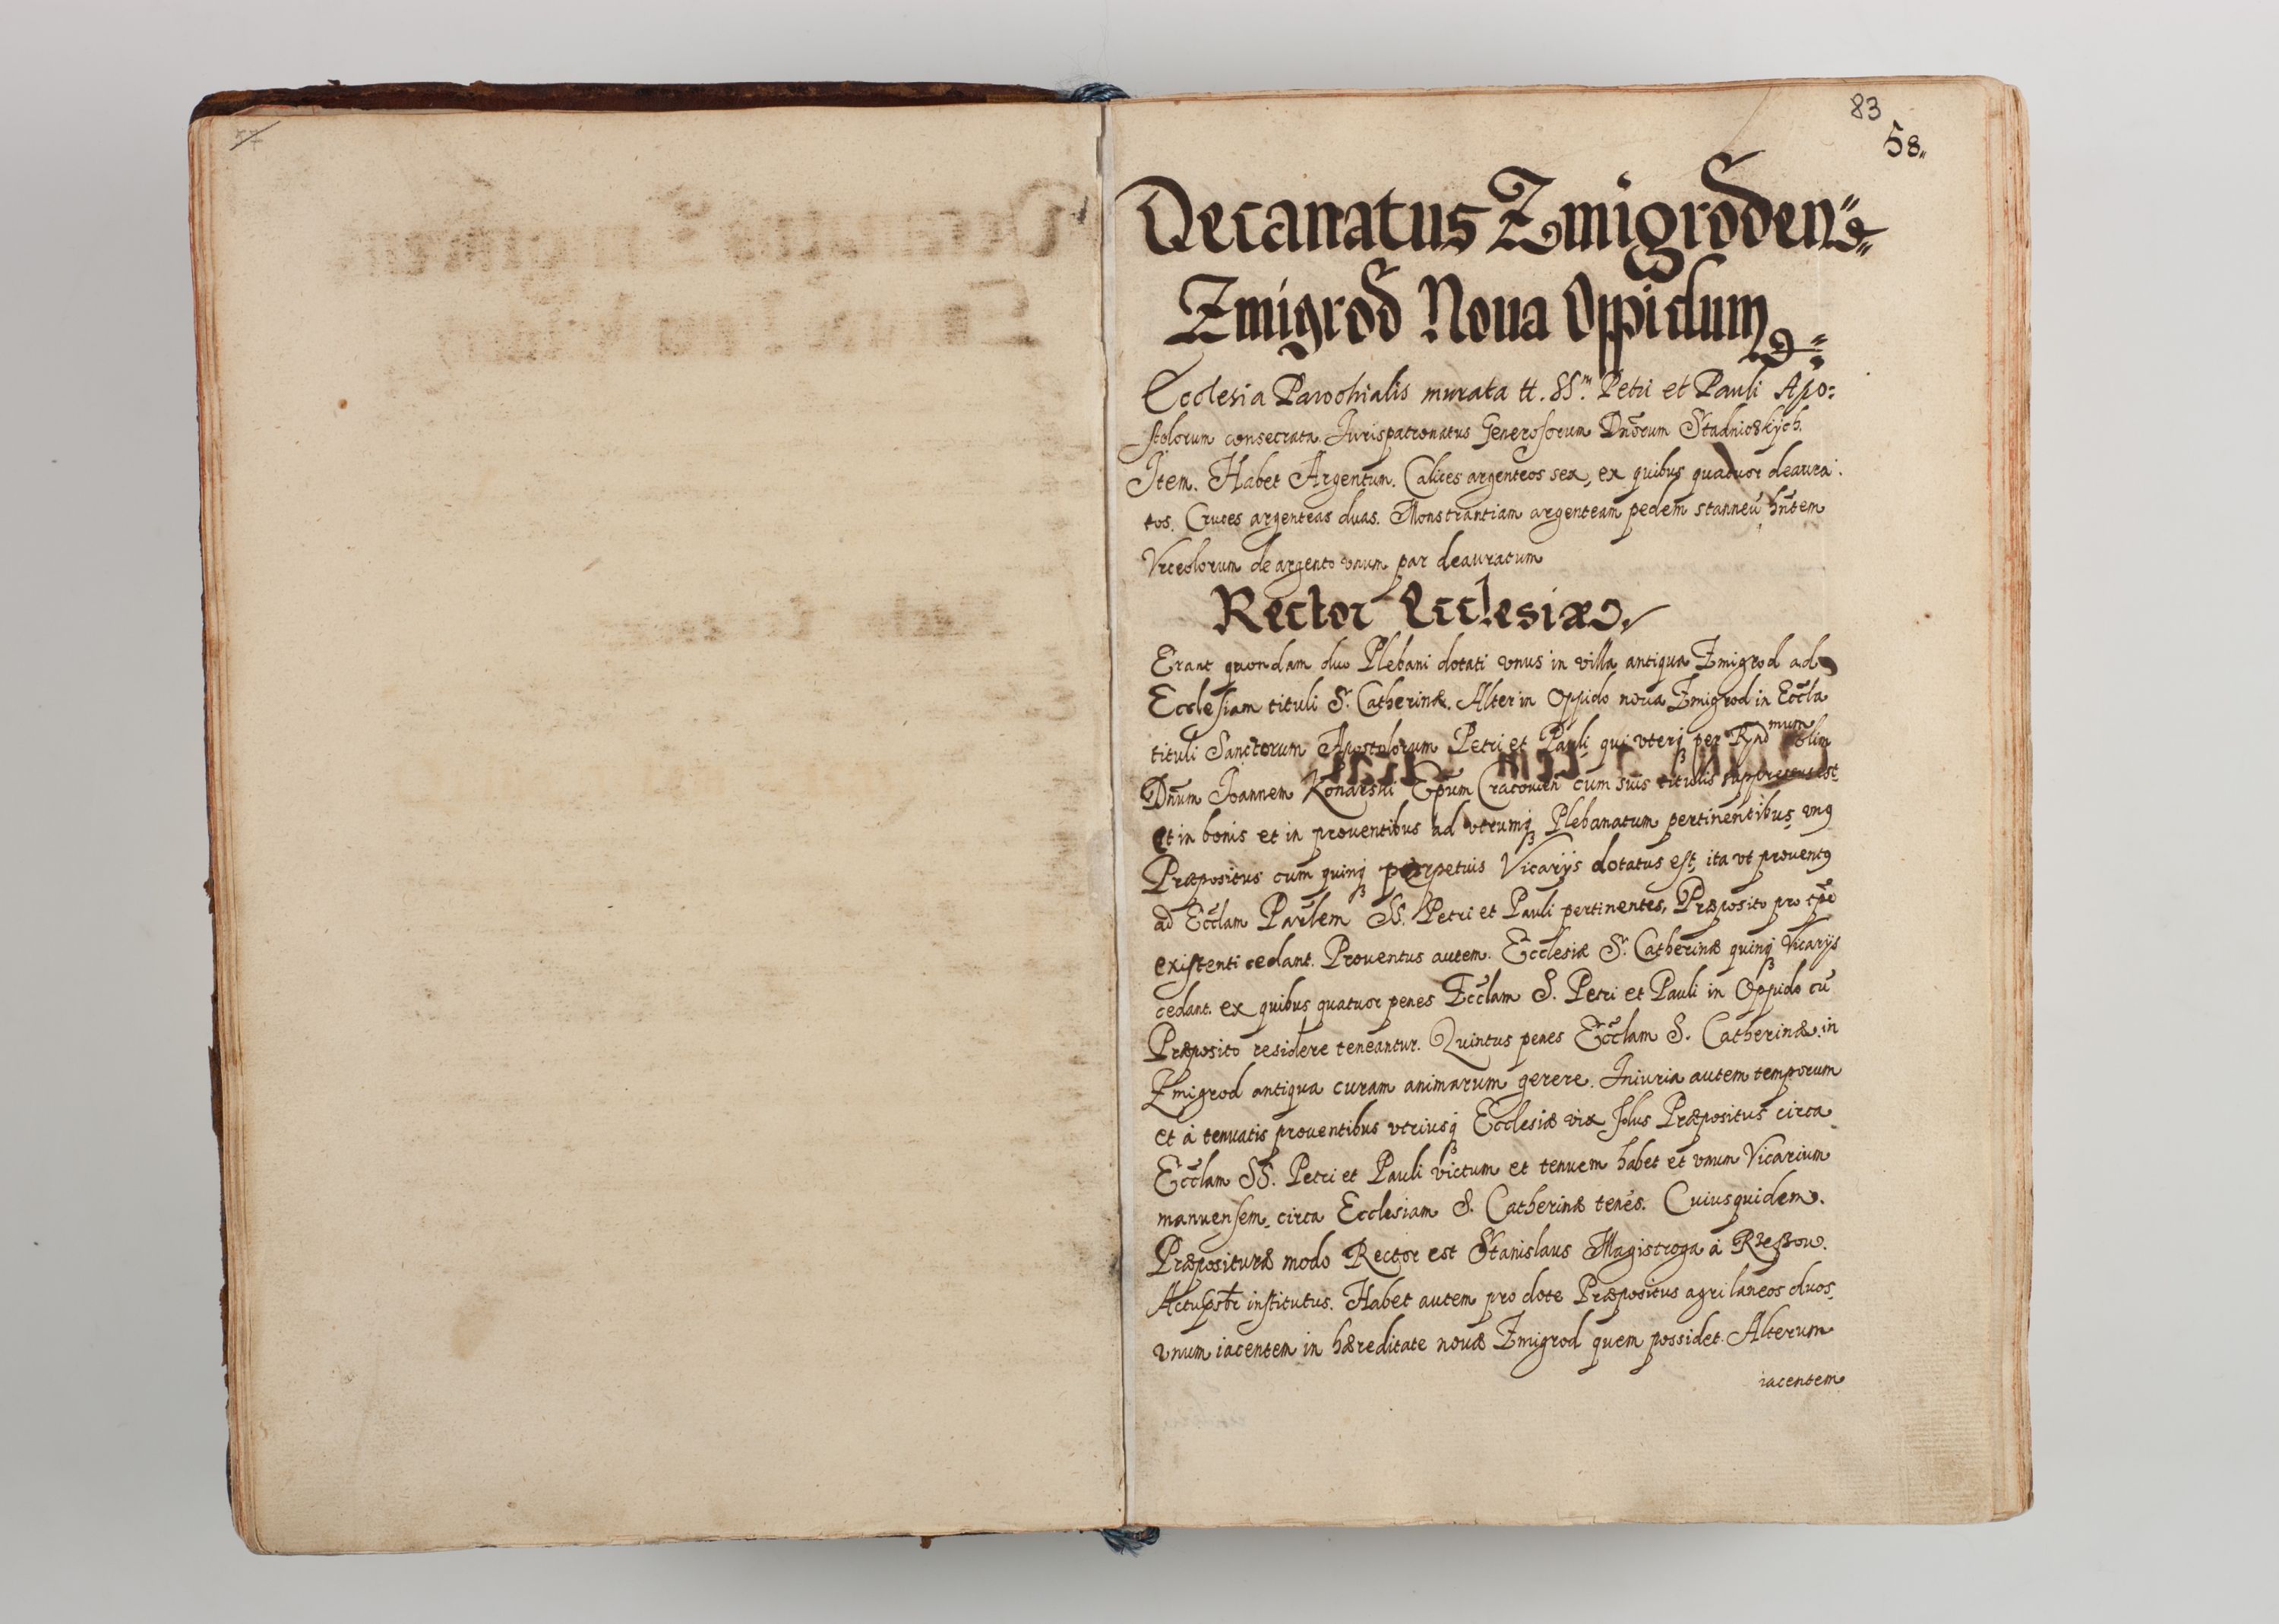 83
58.
Decanatus Zmigroden
Zmigrod Noua Oppidum
Ecclesia Parochialis murata tt. SS.m Petri et Pauli Apo=
stolorum consecrata. Jurispatronatus Generosorum Dnorum Stadnickych.
Item. Habet Argentum. Calices argenteos sex, ex quibus quatuor deaura:
tos. Cruces argenteas duas. Monstrantiam argenteam pedem stanneū hn̄tem
Vrceolorum de argento vnum par deauratum
Rector Ecclesiæ
Erant quondam duo Plebani dotati vnus in villa antiqua Zmigrod ad
Ecclesiam tituli S. Catherinæ. Alter in Oppido noua Zmigrod in Eccl̄a
tituli Sanctorum Apostolorum Petri et Pauli qui vterq3 per Rnd mum olim
Dn̄um Joannem Konarski Ep̄um Cracouien̄ cum suis titulis suppressus est
et in bonis et in prouentibus ad vtrumq3 Plebanatum pertinentibus, vn9
Præpositus cum quinq3 perpetuis Vicarijs dotatus est, ita vt prouent9
ad Eccl̄am Par̄lem SS. Petri et Pauli pertinentes, Præposito pro tp̄e
existenti cedant. Prouentus autem. Ecclesiæ S. Catherinæ quinq3 Vicarijs
cedant. ex quibus quatuor penes Eccl̄am S. Petri et Pauli in Oppido cū
Præposito residere teneantur. Quintus penes Eccl̄am S. Catherinæ. in
Zmigrod antiqua curam animarum gerere. Iniuria autem temporum
et à tenuatis prouentibus vtriusq3 Ecclesiæ vix solus Præpositus circa
Eccl̄am SS. Petri et Pauli victum et tenuem habet et vnum Vicarium
manuensem circa Ecclesiam S. Catherinæ tenēs. Cuiusquidem
Præposituræ modo Rector est Stanislaus Magistroga à Rzeszow.
institutus. Habet autem pro dote Præpositus agri laneos duos,
vnum iacentem in hæreditate nouæ Zmigrod quem possidet. Alterum
iacentem